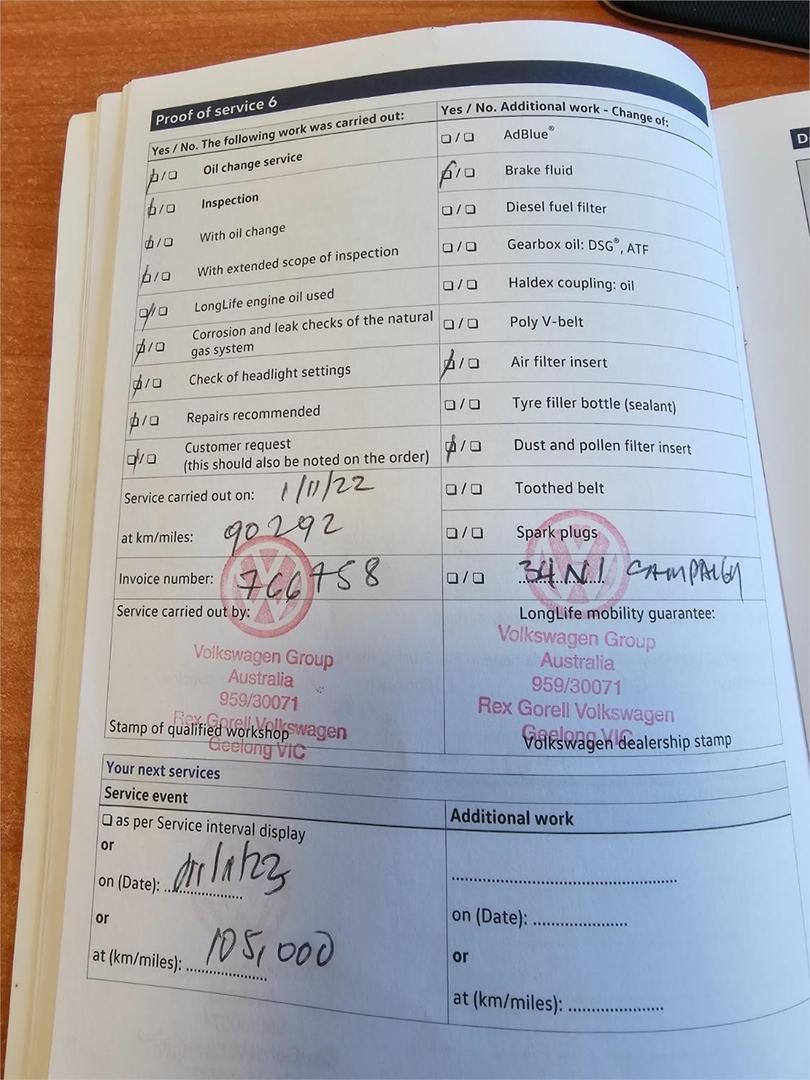 Proof of service 6
Yes / No. The following work was carried out:
☐ / ☐ Oil change service
☐ / ☐ Inspection
☐ / ☐ With oil change
☐ / ☐ With extended scope of inspection
☐ / ☐ LongLife engine oil used
☐ / ☐ Corrosion and leak checks of the natural
gas system
☐ / ☐ Check of headlight settings
☐ / ☐ Repairs recommended
☐ / ☐ Customer request
(this should also be noted on the order)
Service carried out on: 1/11/22
at km/miles: 90292
Invoice number: 766758
Service carried out by:
Volkswagen Group
Australia
959/30071
Rex Gorell Volkswagen
Geelong VIC
Stamp of qualified workshop
Yes / No. Additional work - Change of:
☐ / ☐ AdBlue®
☐ / ☐ Brake fluid
☐ / ☐ Diesel fuel filter
☐ / ☐ Gearbox oil: DSG®, ATF
☐ / ☐ Haldex coupling: oil
☐ / ☐ Poly V-belt
☐ / ☐ Air filter insert
☐ / ☐ Tyre filler bottle (sealant)
☐ / ☐ Dust and pollen filter insert
☐ / ☐ Toothed belt
☐ / ☐ Spark plugs
☐ / ☐ 34N1 CAMPAIGN
LongLife mobility guarantee:
Volkswagen Group
Australia
959/30071
Rex Gorell Volkswagen
Geelong VIC
Volkswagen dealership stamp
Your next services
Service event
☐ as per Service interval display
or
on (Date): ...............
or
at (km/miles): 105,000
Additional work
........................................
on (Date): .................
or
at (km/miles): .................
D